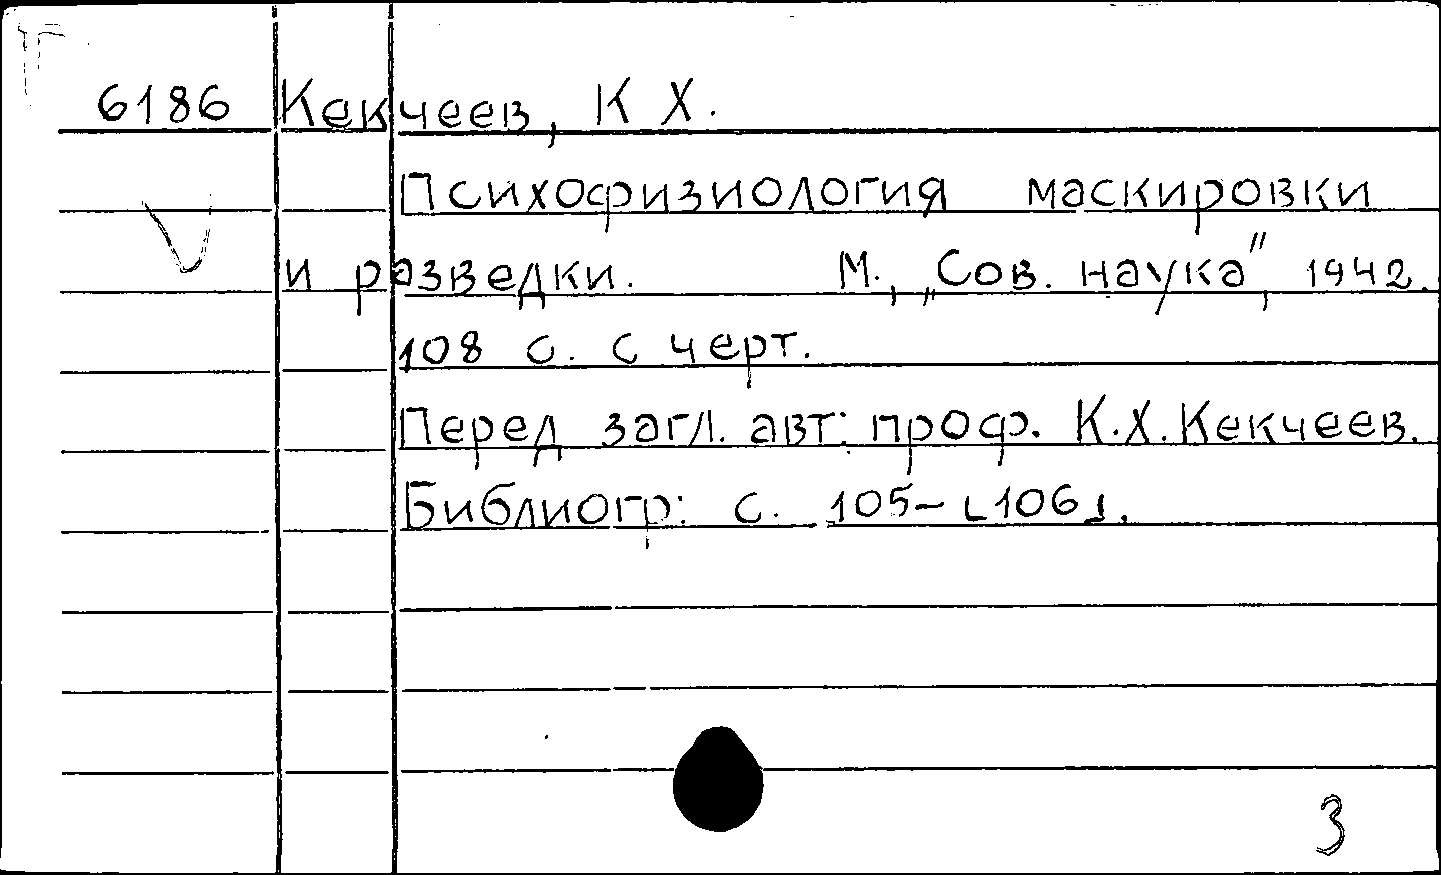 6186 Кекчеев, К Х.
Психофизиология маскировки
и разведки. М., „Сов. наука", 1942.
108 с. с черт.
Перед загл. авт: проф. К.Х.Кекчеев.
Библиогр: с. 105-[106].
3